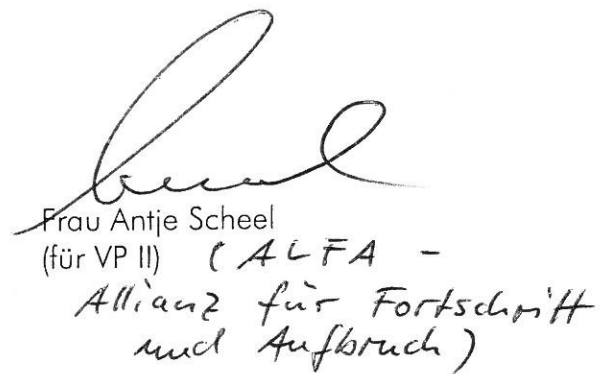 Frau Antje Scheel
(für VP II) (ALFA -
Allianz für Fortschritt
und Aufbruch)